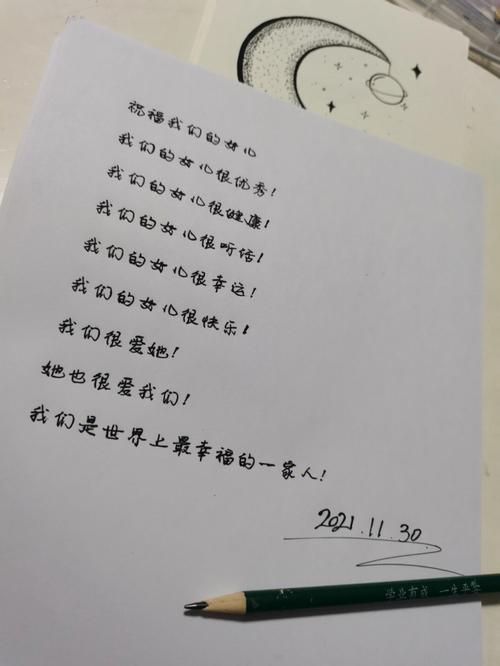 祝福我们的女儿
我们的女儿很优秀!
我们的女儿很健康!
我们的女儿很听话!
我们的女儿很幸运!
我们的女儿很快乐!
我们很爱她!
她也很爱我们!
我们是世界上最幸福的一家人!
2021.11.30
学业有成 一生平安